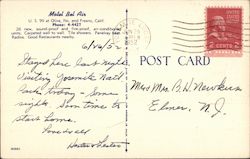 Motel Bel Air
U. S. 99 at Olive, No. end Fresno, Calif.
Phone: 4-4427
26 new, sound-proof and fire-proof, air-conditioned
units. Carpeted wall to wall. Tile showers. Panelray heat.
Radios. Good Restaurants nearby.
6/16/52
Stayed here last night.
Visiting Yosemite Nat'l
Park today - Some
sights. Soon time to
start home.
Love to all
Hester & Lester
POST CARD
Mr & Mrs. B. H. Newkirk
Elmer, N. J.